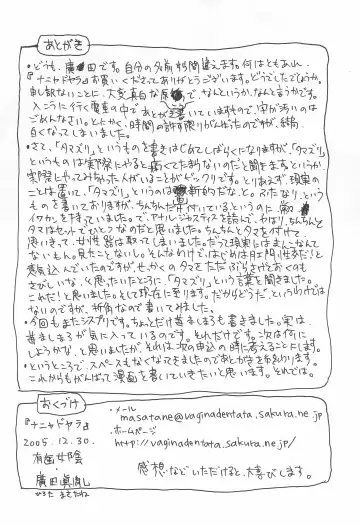 あとがき
・どうも、廣田です。自分の名前も間違えます。何はともあれ
『ナニャドヤラ』お買いくださってありがとうございます。どうでしたでしょうか。
申し訳ないことに、大変真白な原稿で、なんというか、なんと言うかです。
入こうに行く電車の中であとがき書いていますもので、字が汚いのは
ごめんなさい。とにかく、時間の許す限りがんばったのですが、結局
白くなってしまいました。
・さて、「タマズリ」というものを書きはじめてしばらくになりますが、「タマズリ」
というものは実際にやると痛くてたまらないのだと聞きます。というか
実際にやってみちゃった人がいることがビックリです。とりあえず現実の
ことは置いて、「タマズリ」というのは
ものを書いておりますが、ちんちんだけ付いているというのに、常々
イワカンを持っていました。で、アナルジャスティスを読んで、やはり、ちんちんと
タマはセットでひとつなのだと思いました。ちんちんとタマを付けて、
思いきって、女性器は取ってしまいました。だって現実にはまんこなんて
ないもん。見たことないし。そんなわけで、はじめは肛門性交だ!と
意気込んでいたのですが、せっかくのタマをただぶらさげておくのも
さびしいな、と思っていたところに、「タマズリ」という言葉を聞きました。
これだ!と思いました。そして現在に至ります。だからどうだ、というわけでは
ないのですが、折角なので書いてみました。
・今回もまたスジプリです。ちんとだけ昔ましまろも書きました。実は、
昔ましまろが気に入っているのです。それだけです。次は何に
しようかな、と思いましたが、それは、次の申込の時に考えることにします。
・というところで、スペースもなくなってきましたのであとがきをおわります。
これからもがんばって漫画を書いていきたいと思います。それでは。
おくづけ
『ナニャドヤラ』
2005.12.30.
有歯女陰
・
廣田眞胤
ひろた まさたね
・メール
masatane@vaginadentata.sakura.ne.jp
・ホームページ
http://vaginadentata.sakura.ne.jp/
感想などいただけると、大喜びします。